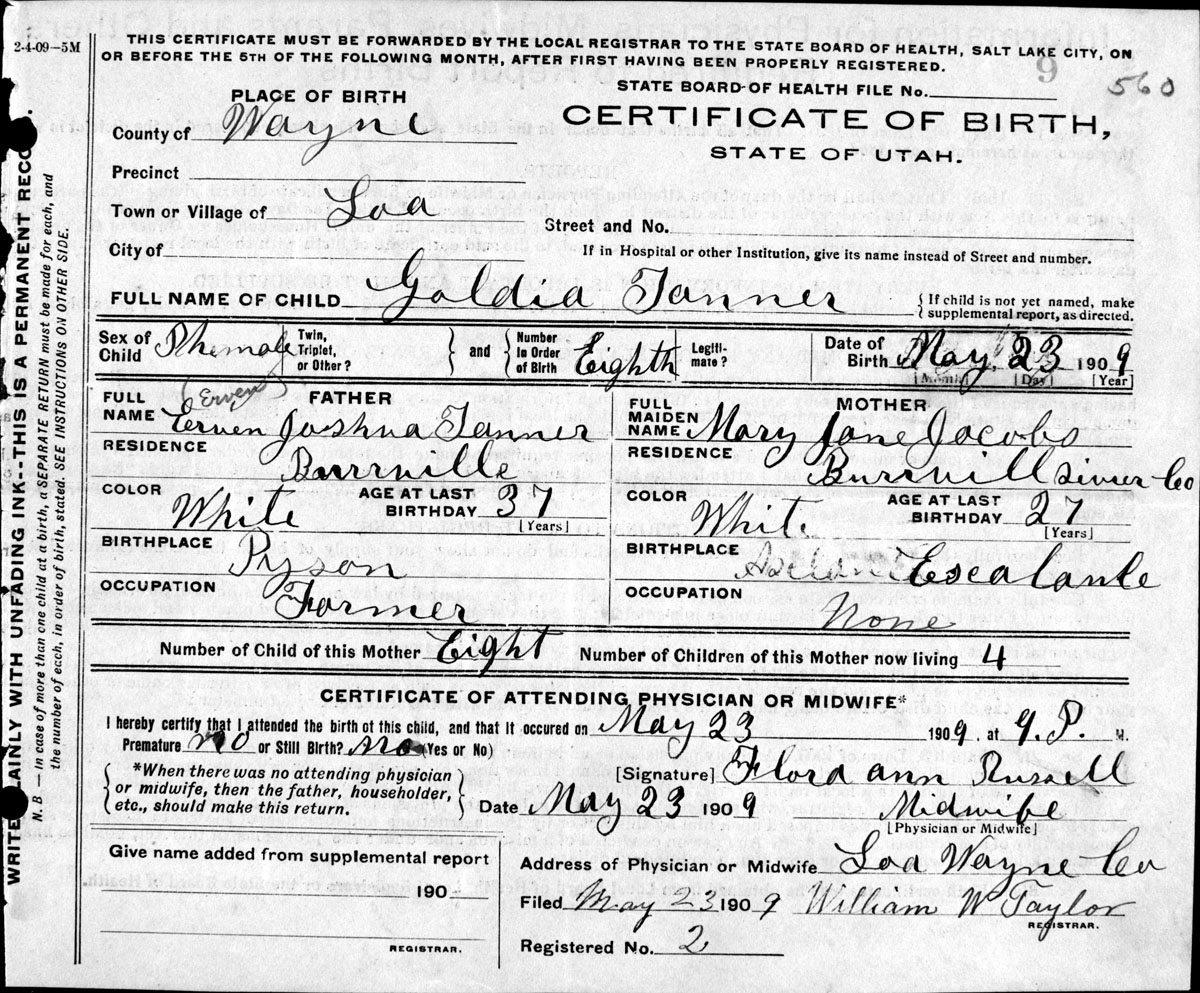 2-4-09—5M
THIS CERTIFICATE MUST BE FORWARDED BY THE LOCAL REGISTRAR TO THE STATE BOARD OF HEALTH, SALT LAKE CITY, ON
OR BEFORE THE 5TH OF THE FOLLOWING MONTH, AFTER FIRST HAVING BEEN PROPERLY REGISTERED.
9
560
STATE BOARD OF HEALTH FILE No.
PLACE OF BIRTH
CERTIFICATE OF BIRTH,
STATE OF UTAH.
County of Wayne
Precinct
Town or Village of Loa
Street and No.
City of
If in Hospital or other Institution, give its name instead of Street and number.
FULL NAME OF CHILD Goldia Tanner
{ If child is not yet named, make
{ supplemental report, as directed.
Sex of Child Phemale Twin, Triplet, or Other? } and { Number In Order of Birth Eighth Legiti-mate? Date of Birth May 23 1909
[Month] [Day] [Year]
FATHER
FULL NAME (Erven) Erven Joshua Tanner
RESIDENCE Burrville
COLOR White AGE AT LAST BIRTHDAY 37 [Years]
BIRTHPLACE Pyson
OCCUPATION Farmer
MOTHER
FULL MAIDEN NAME Mary Jane Jacobs
RESIDENCE Burrvill Sivier Co
COLOR White AGE AT LAST BIRTHDAY 27 [Years]
BIRTHPLACE Escalante
OCCUPATION None
Number of Child of this Mother Eight Number of Children of this Mother now living 4
CERTIFICATE OF ATTENDING PHYSICIAN OR MIDWIFE*
I hereby certify that I attended the birth of this child, and that it occured on May 23 1909. at 9. P. M.
Premature no or Still Birth? no (Yes or No)
{ *When there was no attending physician
or midwife, then the father, householder,
etc., should make this return. }
[Signature] Flord ann Russell
Date May 23 1909 Midwife
[Physician or Midwife]
Give name added from supplemental report
190
REGISTRAR.
Address of Physician or Midwife Loa Wayne Co
Filed May 23 1909 William W Taylor
REGISTRAR.
Registered No. 2
WRITE PLAINLY WITH UNFADING INK--THIS IS A PERMANENT RECO
N. B.—In case of more than one child at a birth, a SEPARATE RETURN must be made for each, and
the number of each, in order of birth, stated. SEE INSTRUCTIONS ON OTHER SIDE.